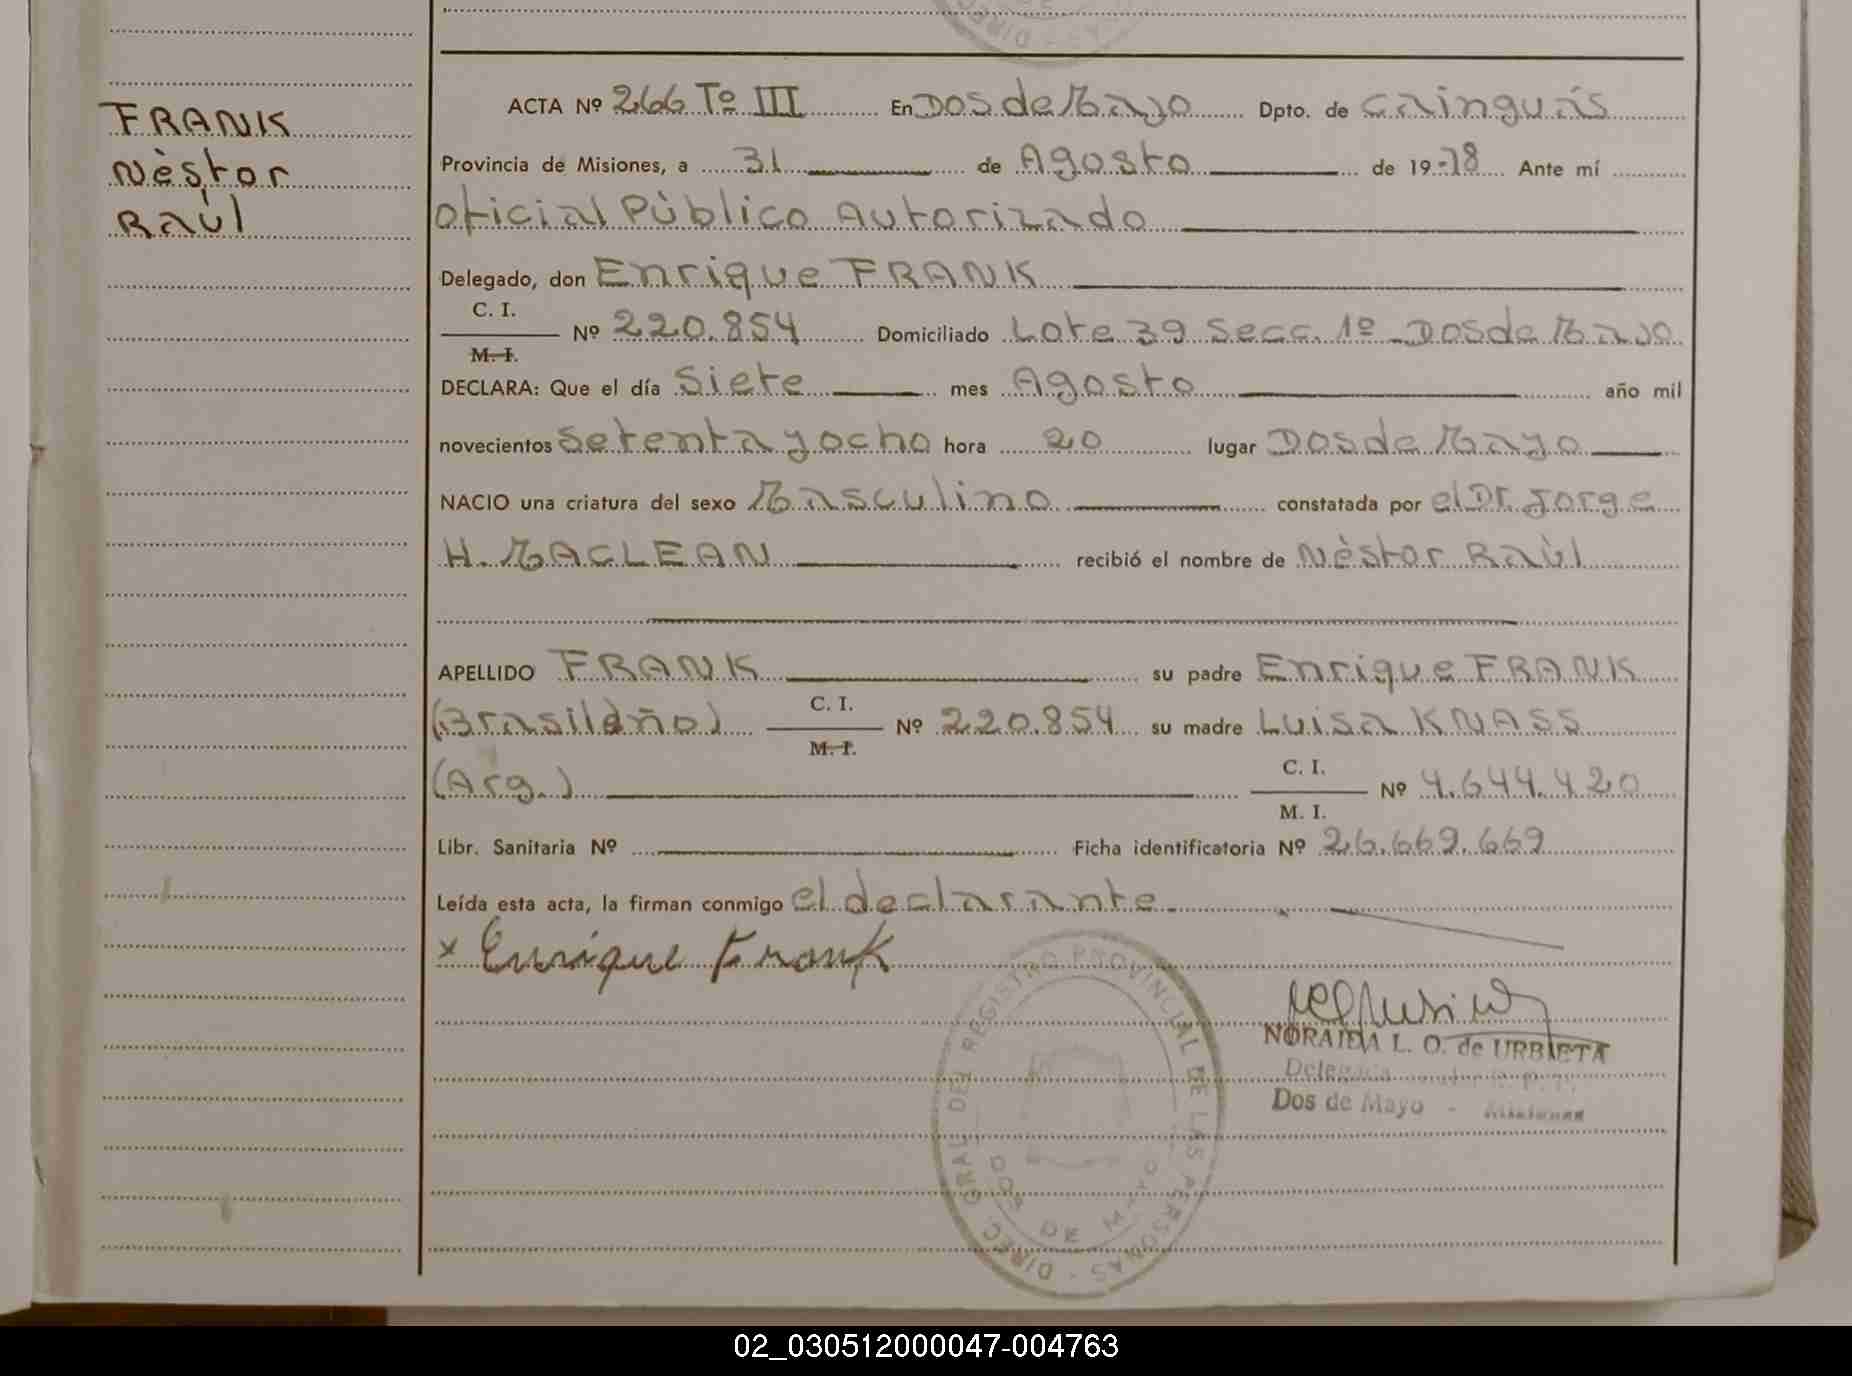 FRANK
Nèstor
Raùl
ACTA Nº 266 Tº III En Dos de Mayo Dpto. de Cainguás
Provincia de Misiones, a 31 de Agosto de 19-78 Ante mí
Oficial Pùblico Autorizado
Delegado, don Enrique FRANK
C. I.
M. I.
Nº 220.854 Domiciliado Lote 39 Secc. 1º Dos de Mayo
DECLARA: Que el día Siete mes Agosto año mil
novecientos Setenta y ocho hora 20 lugar Dos de Mayo
NACIO una criatura del sexo Masculino constatada por el Dr. Jorge
H. MACLEAN recibió el nombre de Nèstor Raùl
APELLIDO FRANK su padre Enrique FRANK
(Brasileño) C. I. Nº 220.854 su madre Luisa KNASS
M. I.
(Arg.) C. I. Nº 4.644.420
M. I.
Libr. Sanitaria Nº Ficha identificatoria Nº 26.669.669
Leída esta acta, la firman conmigo el declarante.
x Enrique Frank
NORAIDA L. O. de URBIETA
Delegada
Dos de Mayo - Misiones
DIREC. GRAL. DEL REGISTRO PROVINCIAL DE LAS PERSONAS
DOS DE MAYO
02_030512000047-004763